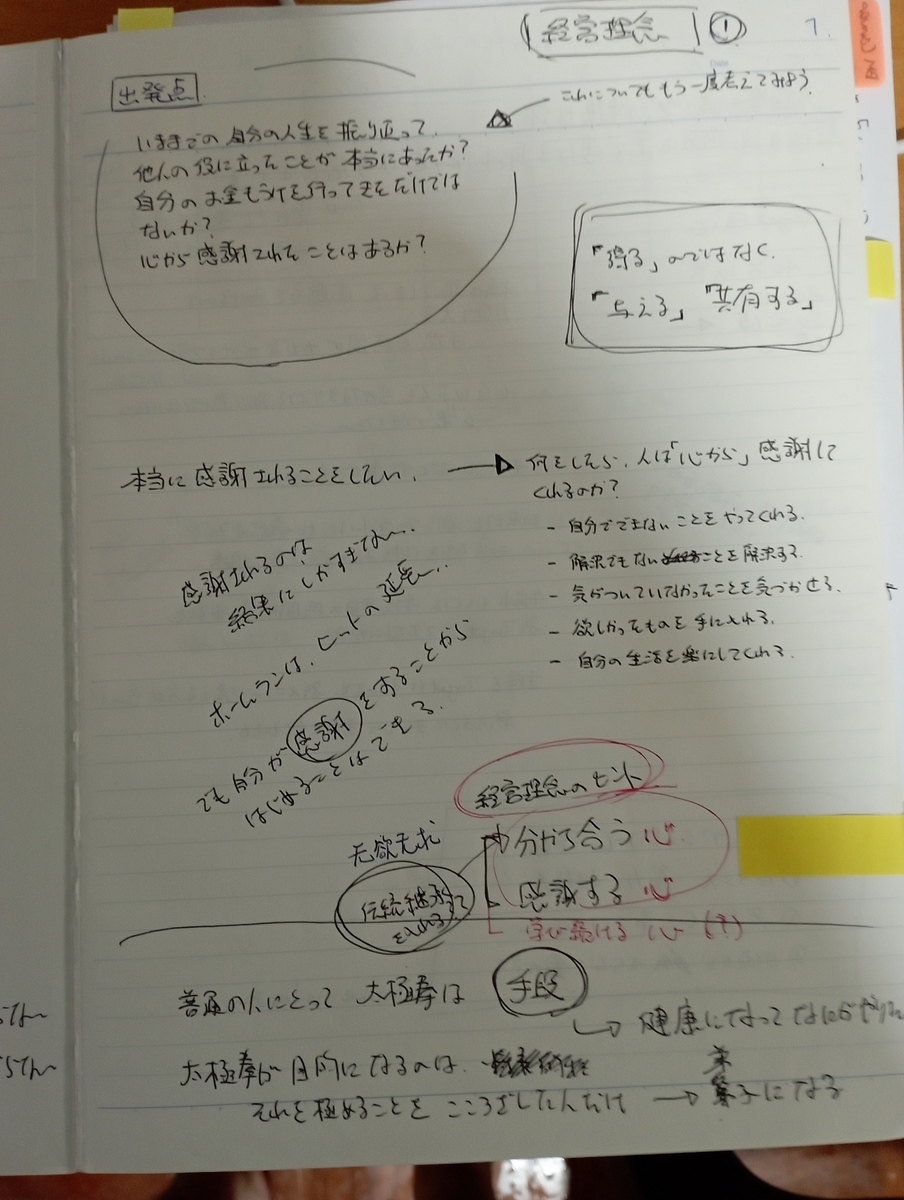 経営理念 ① 7.
出発点
これについてももう一度考えてみよう
いままでの自分の人生を振り返って、
他人の役に立ったことが本当にあったか?
自分のお金もうけを行ってきただけでは
ないか?
心から感謝されたことはあるか?
「得る」のではなく、
「与える」「共有する」
本当に感謝されることをしたい。
何をしたら、人は「心から」感謝して
くれるのか?
- 自分でできないことをやってくれる。
- 解決できないことを解決する。
- 気がついていなかったことを気づかせる。
- 欲しかったものを手に入れる。
- 自分の生活を楽にしてくれる。
感謝されるのは
結果にしかすぎない...
ホームランは、ヒットの延長...
でも自分が感謝をすることから
はじめることはできる。
経営理念のヒント
无欲无求
分かち合う心
伝統継承
感謝する心
学び続ける心(?)
普通の人にとって太極拳は 手段
健康になって
太極拳が目的になるのは、
それを極めることをこころざした人だけ
弟子になる